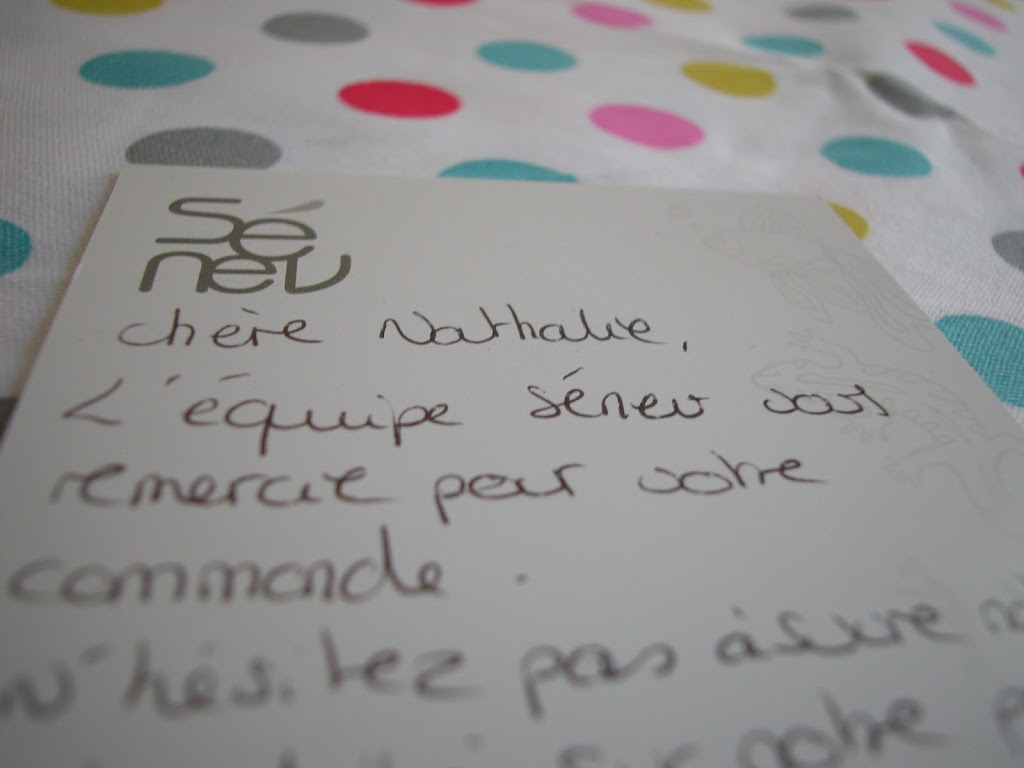 Sé
neu
Chère Nathalie,
L'équipe Séneu vous
remercie pour votre
commande.
N'hésitez pas à suivre
sur notre